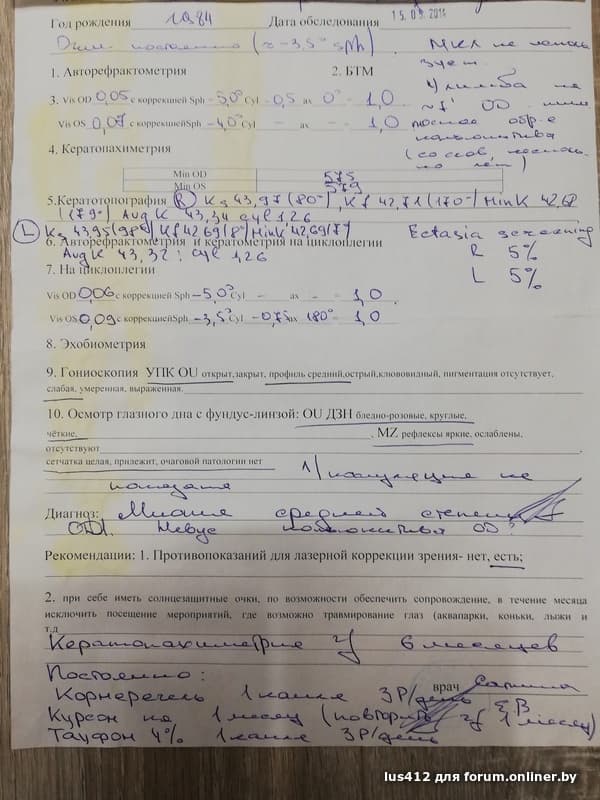 Год рождения 1984 Дата обследования 15.09.2014
Очки постоянно (≈ -3,5° sph). МКЛ не
1. Авторефрактометрия 2. БТМ
У лимба на
3. Vis OD 0,05 с коррекцией Sph -5,0° Cyl -0,5 ax 0° = 1,0
Vis OS 0,07 с коррекцией Sph -4,0° Cyl - - = 1,0
4. Кератопахиметрия
конъюнктива
(со слов,
Min OD 575
Min OS 579
5. Кератотопография (R) Ks 43,97 (80°), Kf 42,71 (170°) MinK 42,68
(179°) AvgK 43,34 Cyl 1,26
(L) Ks 43,95 (98°) Kf 42,69 (8°) MinK 42,69 (7°)
Ectasia screening
6. Авторефрактометрия и кератометрия на циклоплегии
AvgK 43,32; Cyl 1,26
R 5%
L 5%
7. На циклоплегии
Vis OD 0,06 с коррекцией Sph -5,0° Cyl - ax - = 1,0
Vis OS 0,09 с коррекцией Sph -3,5° Cyl -0,75 ax 180° = 1,0
8. Эхобиометрия
9. Гониоскопия УПК OU открыт,закрыт, профиль средний,острый,клювовидный, пигментация отсутствует,
слабая, умеренная, выраженная.
10. Осмотр глазного дна с фундус-линзой: OU ДЗН бледно-розовые, круглые,
чёткие, . MZ рефлексы яркие, ослаблены,
отсутствуют
сетчатка целая, прилежит, очаговой патологии нет л/коагуляция не
показана
Диагноз: Миопия средней степени
OD. Невус конъюнктивы OD?
Рекомендации: 1. Противопоказаний для лазерной коррекции зрения- нет, есть;
2. при себе иметь солнцезащитные очки, по возможности обеспечить сопровождение, в течение месяца
исключить посещение мероприятий, где возможно травмирование глаз (аквапарки, коньки, лыжи и
т.д
Кератопахиметрия ч/з 6 месяцев
Постоянно:
врач
Корнерегель 1 капля 3 Р/день
Курсон на 1 месяц (повторить ч/з 1 месяц)
Тауфон 4% 1 капля 3Р/день
lus412 для forum.onliner.by